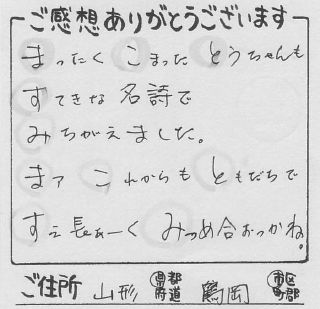 ご感想ありがとうございます
まったく こまった とうちゃんも
すてきな 名詩で
みちがえました。
まァ これからも ともだちで
すえ長ぁーく みつめ合おっかね。
ご住所 山形 都道府県 鶴岡 市区町郡